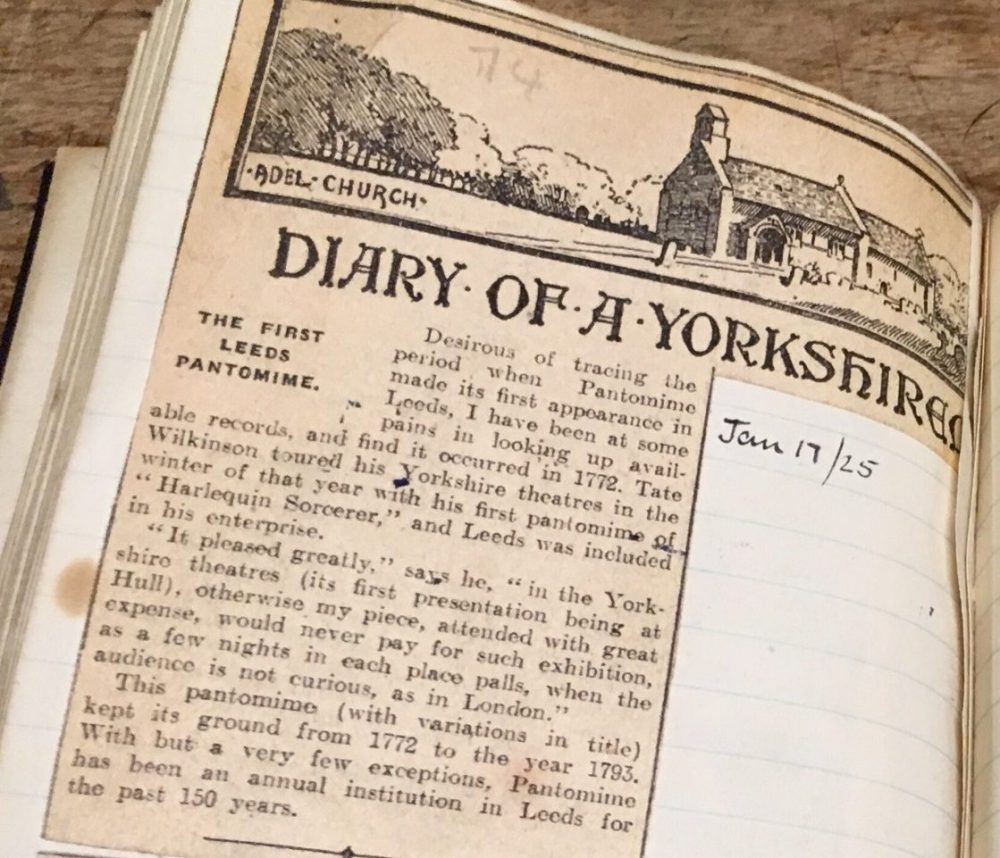 ·ADEL·CHURCH·
DIARY·OF·A·YORKSHIRE
THE FIRST
LEEDS
PANTOMIME.
Desirous of tracing the
period when Pantomime
made its first appearance in
Leeds, I have been at some
pains in looking up avail-
able records, and find it occurred in 1772. Tate
Wilkinson toured his Yorkshire theatres in the
winter of that year with his first pantomime of
"Harlequin Sorcerer," and Leeds was included
in his enterprise.
"It pleased greatly," says he, "in the York-
shire theatres (its first presentation being at
Hull), otherwise my piece, attended with great
expense, would never pay for such exhibition,
as a few nights in each place palls, when the
audience is not curious, as in London."
This pantomime (with variations in title)
kept its ground from 1772 to the year 1793.
With but a very few exceptions, Pantomime
has been an annual institution in Leeds for
the past 150 years.
Jan 17/25